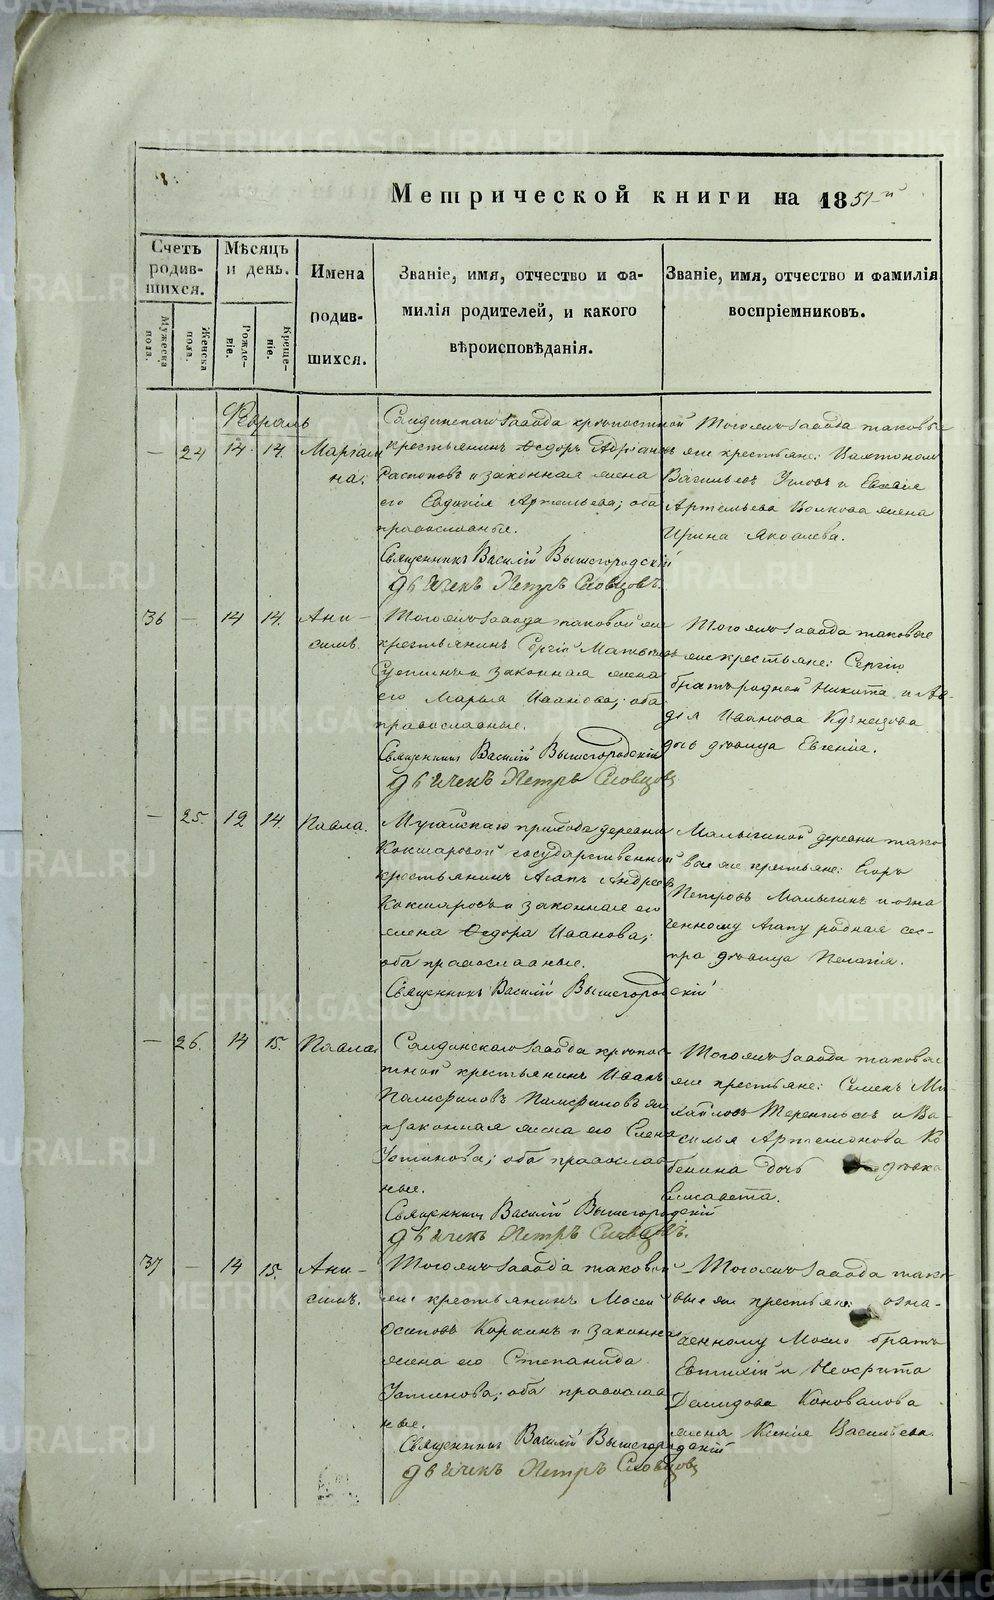 Метрической книги на 1851-й
Счетъ родившихся.
Мѣсяцъ и день.
Имена родившихся.
Званіе, имя, отчество и фамилія родителей, и какого вѣроисповѣданія.
Званіе, имя, отчество и фамилія воспріемниковъ.
Мужеска пола.
Женска пола.
Рожденіе.
Крещеніе.
Февраль
— 24 14 14. Маріамна.
Салдинскаго завода крѣпостной
крестьянинъ Ѳедоръ
и законная жена
его Евдокія Артемьева; оба
православные.
Священникъ Василій Вышегородскій
Дьячекъ Петръ Словцовъ.
Тогоже завода таковые
же крестьяне:
Васильевъ и
Артемьева Волкова жена
Ирина Яковлева.
36 — 14 14. Анисимъ.
Тогоже завода таковой же
крестьянинъ Сергій
и законная жена
его Марья Иванова; оба
православные.
Священникъ Василій Вышегородскій
Дьячекъ Петръ Словцовъ
Тогоже завода таковые
же крестьяне: Сергію
братъ родной Никита и
Иванова Кузнецова
дочь дѣвица Евгенія.
— 25. 12 14. Павла.
Мугайскаго прихода деревни
Кокшаровой государственной
крестьянинъ Агапъ Андреевъ
Кокшаровъ и законная его
жена Ѳедора Иванова;
оба православные.
Священникъ Василій Вышегородскій
Малыгиной деревни таковые же крестьяне: Егоръ
Петровъ Малыгинъ и означенному Агапу родная сестра дѣвица Пелагія.
— 26. 14 15. Павла.
Салдинскаго завода крѣпостной крестьянинъ Иванъ
Памфиловъ
и законная жена его Елена
Устинова; оба православные.
Священникъ Василій Вышегородскій
Дьячекъ Петръ Словцовъ.
Тогоже завода таковые
же крестьяне: Семенъ Михайловъ Терентьевъ и Василья Артемонова
дочь дѣвка
Елисавета.
37 — 14 15. Анисимъ.
Тогоже завода таковой
же крестьянинъ Мосей
Осиповъ Коркинъ и законная
жена его Степанида
Устинова; оба православные.
Священникъ Василій Вышегородскій
Дьячекъ Петръ Словцовъ
Тогоже завода таковые же крестьяне: означенному Мосею братъ
Евтихій и
Демидова Коновалова
жена Ксенія Васильева.
METRIKI.GASO-URAL.RU